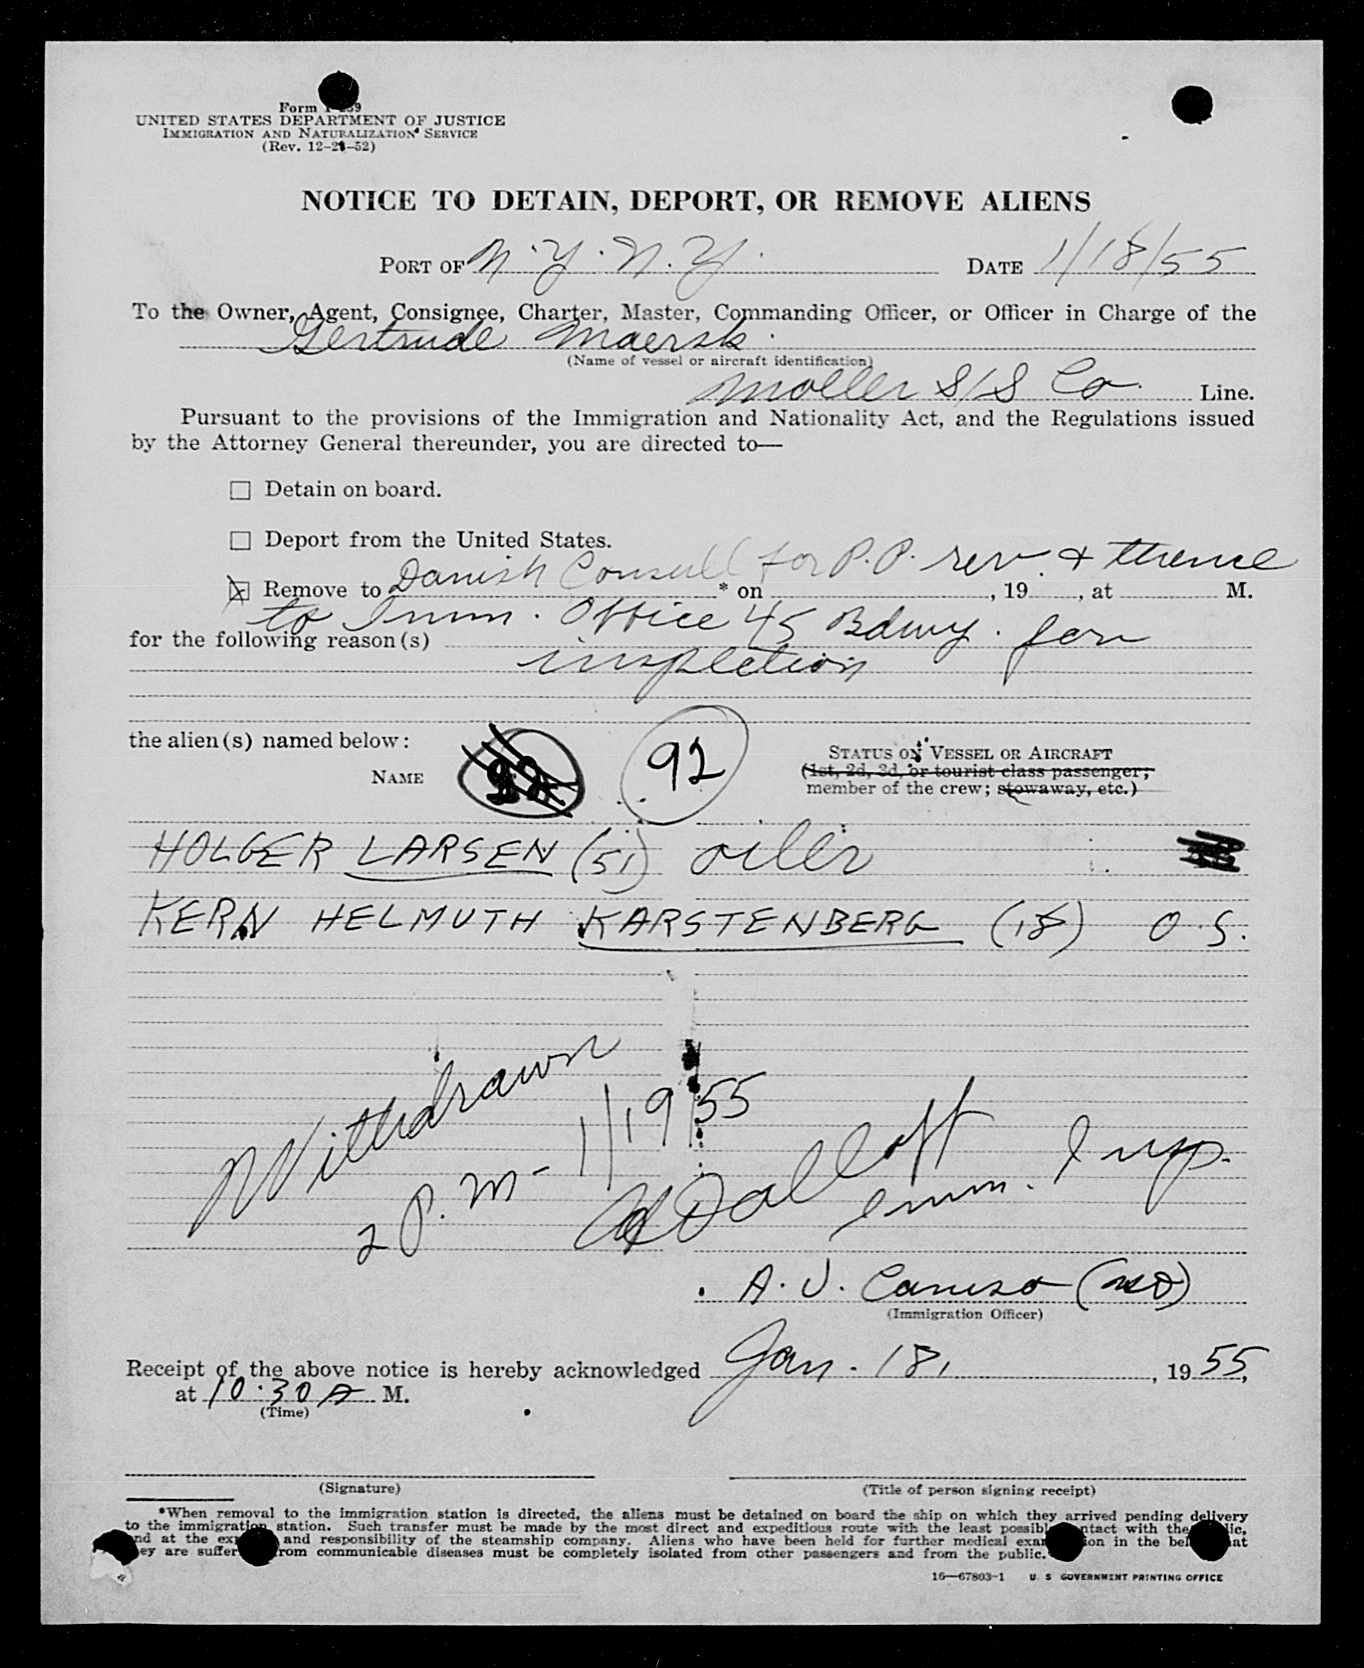 Form I-259
UNITED STATES DEPARTMENT OF JUSTICE
IMMIGRATION AND NATURALIZATION SERVICE
(Rev. 12-24-52)
NOTICE TO DETAIN, DEPORT, OR REMOVE ALIENS
PORT OF N.Y. N.Y. DATE 1/18/55
To the Owner, Agent, Consignee, Charter, Master, Commanding Officer, or Officer in Charge of the
Gertrude Maersk.
(Name of vessel or aircraft identification)
Moller S/S Co. Line.
Pursuant to the provisions of the Immigration and Nationality Act, and the Regulations issued
by the Attorney General thereunder, you are directed to—
Detain on board.
Deport from the United States.
Remove to Danish Consull for P.P. rev. & thence * on , 19 , at M.
to Imm. Office 45 Bdwy. for
for the following reason(s)
inspection
the alien(s) named below:
NAME 92
STATUS ON VESSEL OR AIRCRAFT
(1st, 2d, 3d, or tourist class passenger;
member of the crew; stowaway, etc.)
HOLGER LARSEN (51) oiler
KERN HELMUTH KARSTENBERG (18) O.S.
Withdrawn
2 P.M - 1/19/55
Imm. Insp.
A. J. Caruso
(Immigration Officer)
Receipt of the above notice is hereby acknowledged Jan. 18, , 19 55,
at 10:30 A M.
(Time)
(Signature) (Title of person signing receipt)
*When removal to the immigration station is directed, the aliens must be detained on board the ship on which they arrived pending delivery
to the immigration station. Such transfer must be made by the most direct and expeditious route with the least possible contact with the public,
and at the expense and responsibility of the steamship company. Aliens who have been held for further medical examination in the belief that
they are suffering from communicable diseases must be completely isolated from other passengers and from the public.
16—67803-1 U. S. GOVERNMENT PRINTING OFFICE